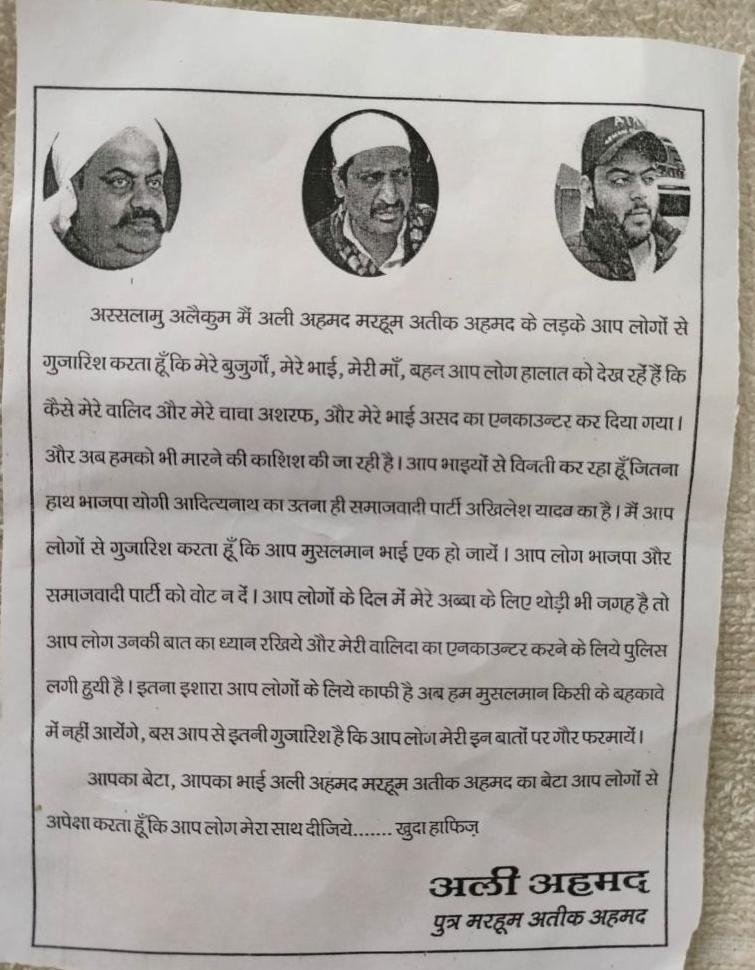 अस्सलामु अलैकुम मैं अली अहमद मरहूम अतीक अहमद के लड़के आप लोगों से
गुजारिश करता हूँ कि मेरे बुजुर्गों, मेरे भाई, मेरी माँ, बहन आप लोग हालात को देख रहें हैं कि
कैसे मेरे वालिद और मेरे चाचा अशरफ, और मेरे भाई असद का एनकाउन्टर कर दिया गया।
और अब हमको भी मारने की काशिश की जा रही है। आप भाइयों से विनती कर रहा हूँ जितना
हाथ भाजपा योगी आदित्यनाथ का उतना ही समाजवादी पार्टी अखिलेश यादव का है। मैं आप
लोगों से गुजारिश करता हूँ कि आप मुसलमान भाई एक हो जायें। आप लोग भाजपा और
समाजवादी पार्टी को वोट न दें। आप लोगों के दिल में मेरे अब्बा के लिए थोड़ी भी जगह है तो
आप लोग उनकी बात का ध्यान रखिये और मेरी वालिदा का एनकाउन्टर करने के लिये पुलिस
लगी हुयी है। इतना इशारा आप लोगों के लिये काफी है अब हम मुसलमान किसी के बहकावे
में नहीं आयेंगे, बस आप से इतनी गुजारिश है कि आप लोग मेरी इन बातों पर गौर फरमायें।
आपका बेटा, आपका भाई अली अहमद मरहूम अतीक अहमद का बेटा आप लोगों से
अपेक्षा करता हूँ कि आप लोग मेरा साथ दीजिये....... खुदा हाफिज़
अली अहमद
पुत्र मरहूम अतीक अहमद